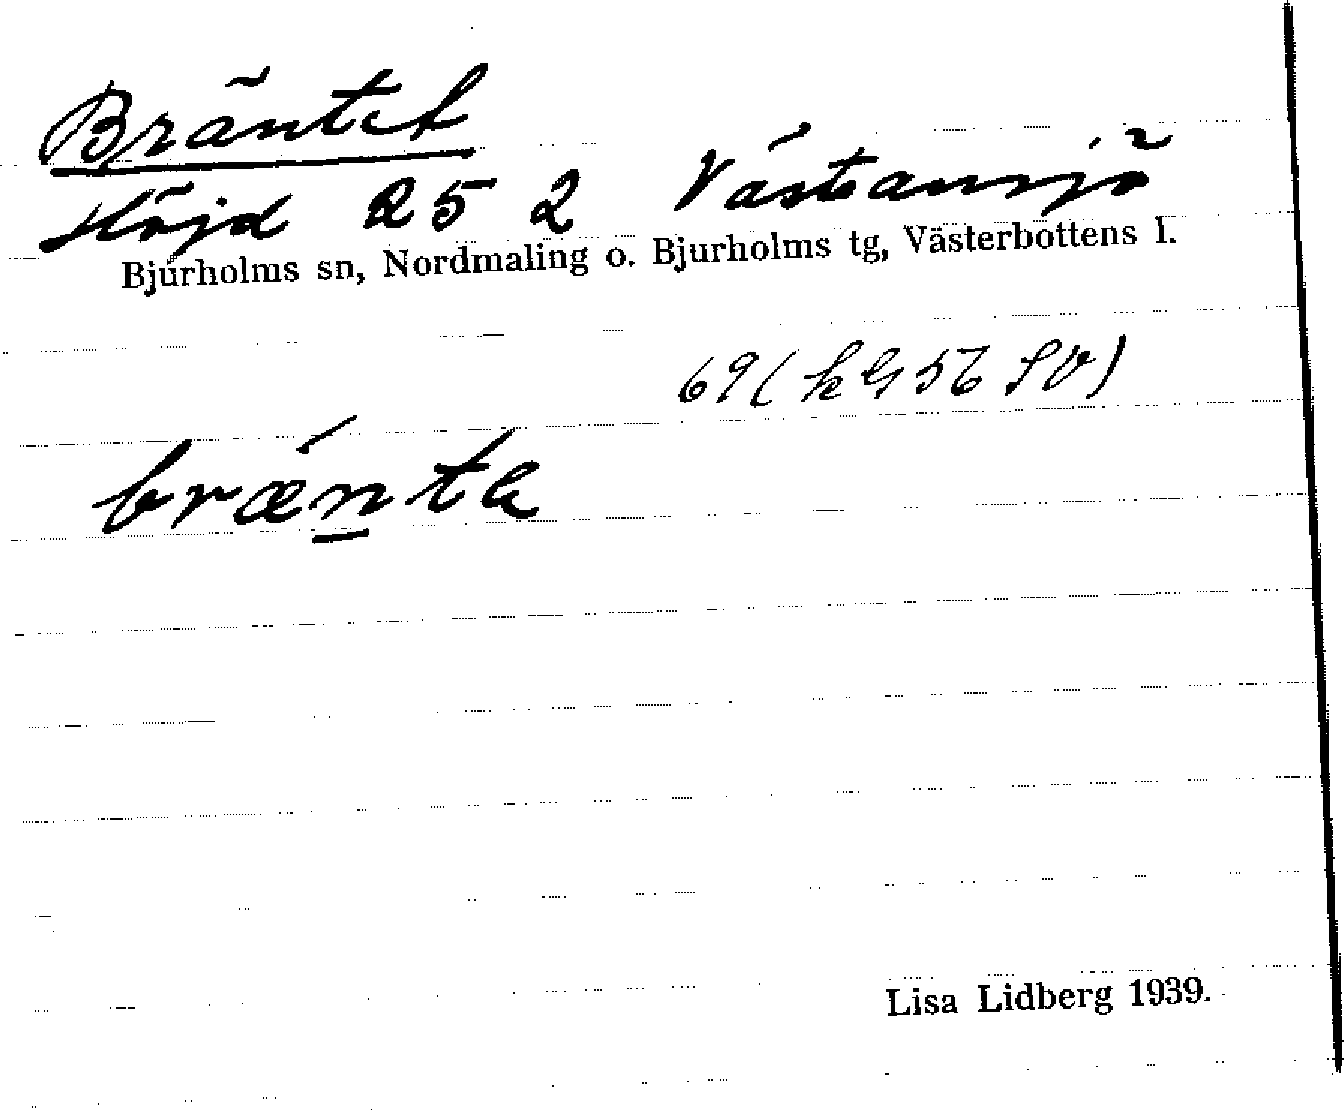 Bräntet
Höjd 252 Västansjö
Bjurholms sn, Nordmaling o. Bjurholms tg, Västerbottens l.
69 (kG 56 SV)
brænta
Lisa Lidberg 1939.